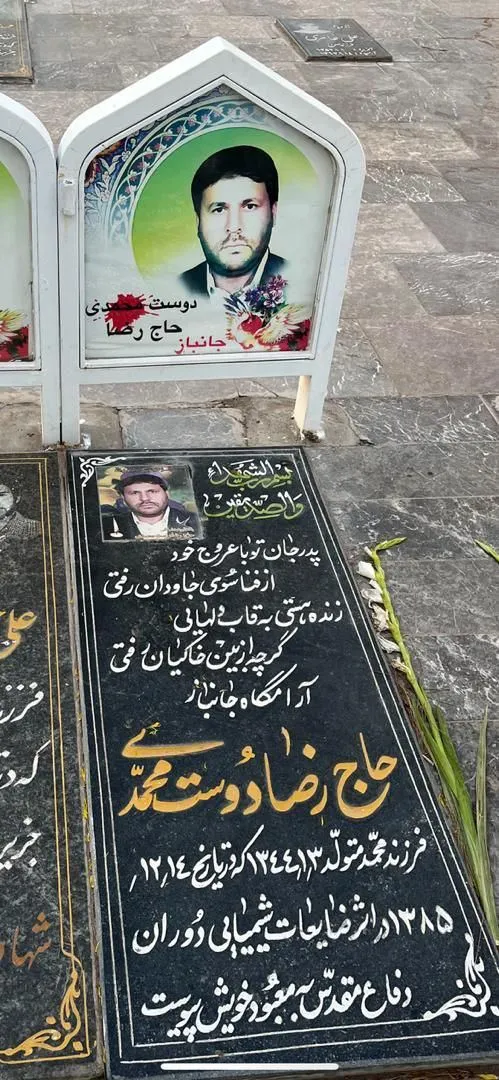 دوست محمدی
حاج رضا
جانباز
بسم رب الشهداء
والصدیقین
پدر جان تو با عروج خود
از فنا سوی جاودان رفتی
زنده هستی به قاب دلهایی
گرچه از بین خاکیان رفتی
آرامگاه جانباز
حاج رضا دوست محمدی
فرزند محمد متولد ۱۳۴۴/۱/۳ که در تاریخ ۱۲/۱۴/
۱۳۸۵ در اثر ضایعات شیمیایی دوران
دفاع مقدس به معبود خویش پیوست
علی
فرزند
که در
شهاد